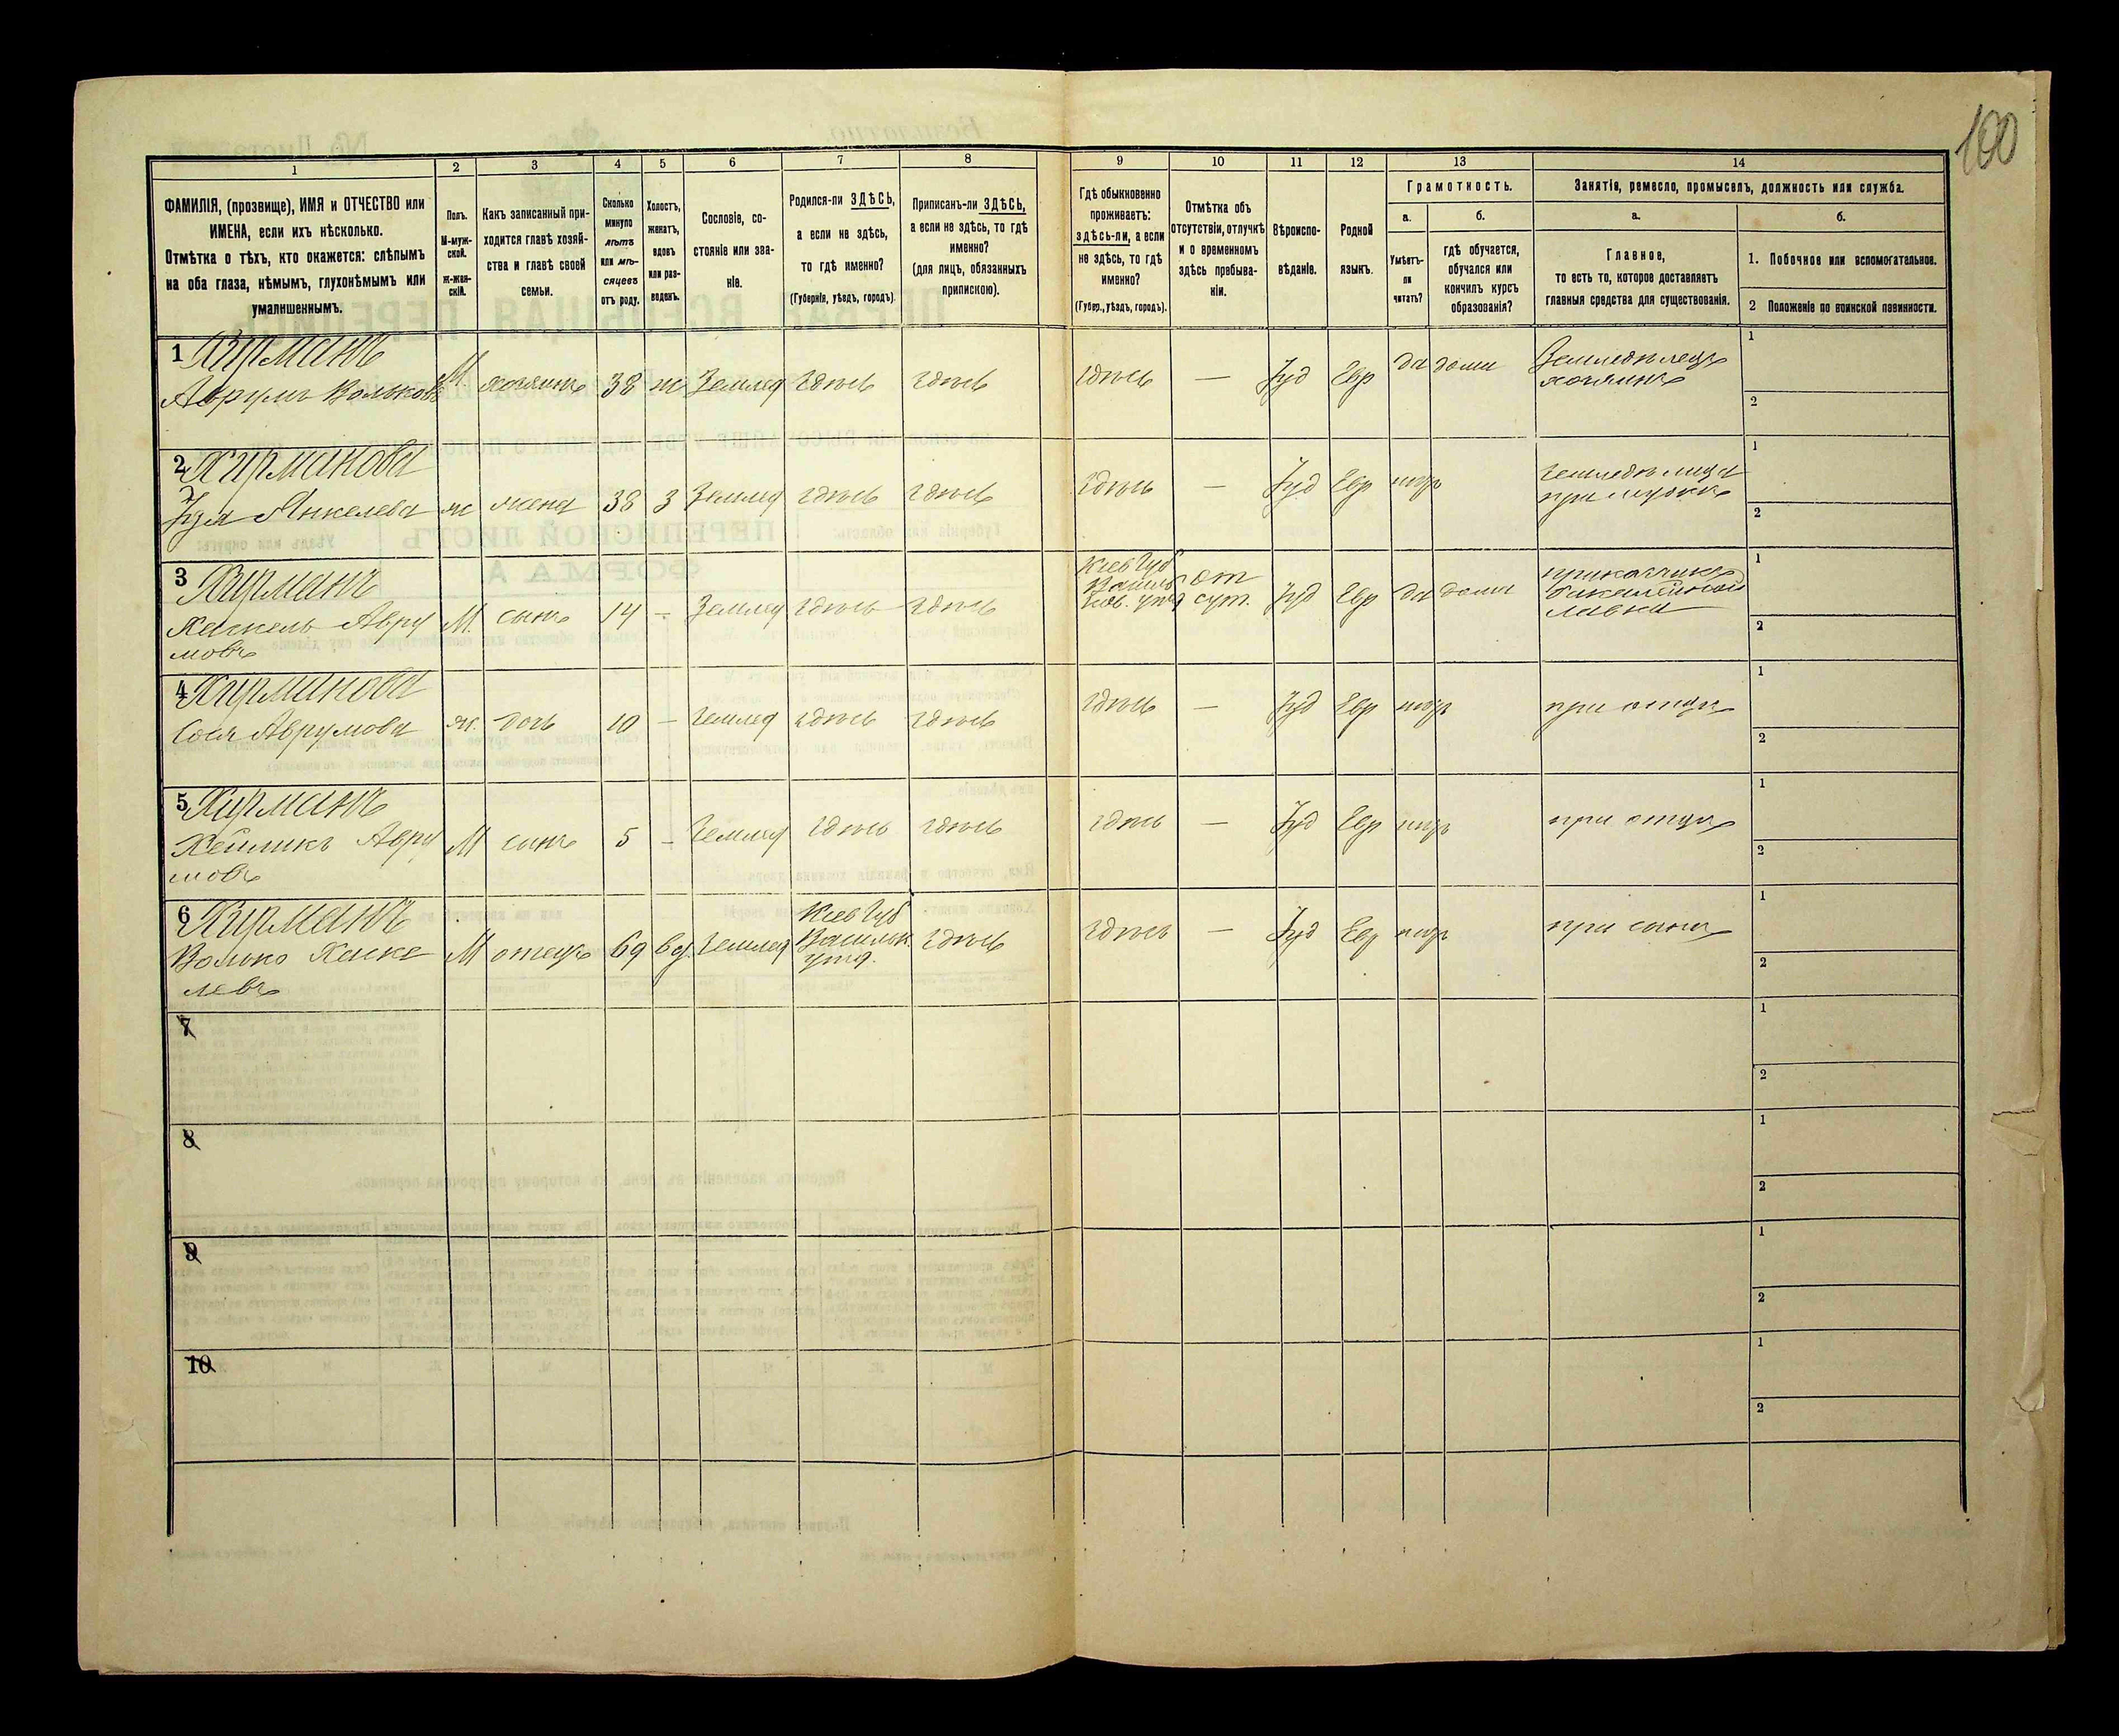 100
1
2
3
4
5
6
7
8
9
10
11
12
13
14
ФАМИЛІЯ, (прозвище), ИМЯ и ОТЧЕСТВО или
ИМЕНА, если ихъ нѣсколько.
Отмѣтка о тѣхъ, кто окажется: слѣпымъ
на оба глаза, нѣмымъ, глухонѣмымъ или
умалишеннымъ.
Полъ.
М-муж-
ской.
Ж-жен-
скій.
Какъ записанный при-
ходится главѣ хозяй-
ства и главѣ своей
семьи.
Сколько
минуло
лѣтъ
или мѣ-
сяцевъ
отъ роду.
Холостъ,
женатъ,
вдовъ
или раз-
веденъ.
Сословіе, со-
стояніе или зва-
ніе.
Родился-ли ЗДѢСЬ,
а если не здѣсь,
то гдѣ именно?
(Губернія, уѣздъ, городъ).
Приписанъ-ли ЗДѢСЬ,
а если не здѣсь, то гдѣ
именно?
(для лицъ, обязанныхъ
припискою).
Гдѣ обыкновенно
проживаетъ:
здѣсь-ли, а если
не здѣсь, то гдѣ
именно?
(Губер., уѣздъ, городъ).
Отмѣтка объ
отсутствіи, отлучкѣ
и о временномъ
здѣсь пребыва-
ніи.
Вѣроиспо-
вѣданіе.
Родной
языкъ.
Грамотность.
а.
Умѣетъ-
ли
читать?
б.
гдѣ обучается,
обучался или
кончилъ курсъ
образованія?
Занятія, ремесло, промыселъ, должность или служба.
а.
Главное,
то есть то, которое доставляетъ
главныя средства для существованія.
б.
1. Побочное или вспомогательное.
2 Положеніе по воинской повинности.
1 Хирманъ
Аврумъ Вольковъ М. хозяинъ 38 ж Землед здѣсь здѣсь здѣсь — Іуд Евр да дома Земледѣлецъ
хозяинъ
1
2
2 Хирманова
Янкелева ж жена 38 З Землед здѣсь здѣсь здѣсь — Іуд Евр нѣтъ земледѣлица
при мужѣ
1
2
3 Хирманъ
Хаскель Авру
мовъ М. сынъ 14 - Землед здѣсь здѣсь Кіев Губ
уѣзд от
сут. Іуд Евр да дома приказчикъ
бакалейной
лавки
1
2
4 Хирманова
Сося Аврумова ж. дочь 10 — землед здѣсь здѣсь здѣсь — Іуд Евр нѣтъ при отцѣ
1
2
5 Хирманъ
Авру
мовъ М сынъ 5 - землед здѣсь здѣсь здѣсь — Іуд Евр нѣтъ при отцѣ
1
2
6 Хирманъ
Волько Хаске
левъ М отецъ 69 вд. землед Кіев Губ
Васильк.
уѣзд. здѣсь здѣсь — Іуд Евр нѣтъ при сынѣ
1
2
7
1
2
8
1
2
9
1
2
10
1
2